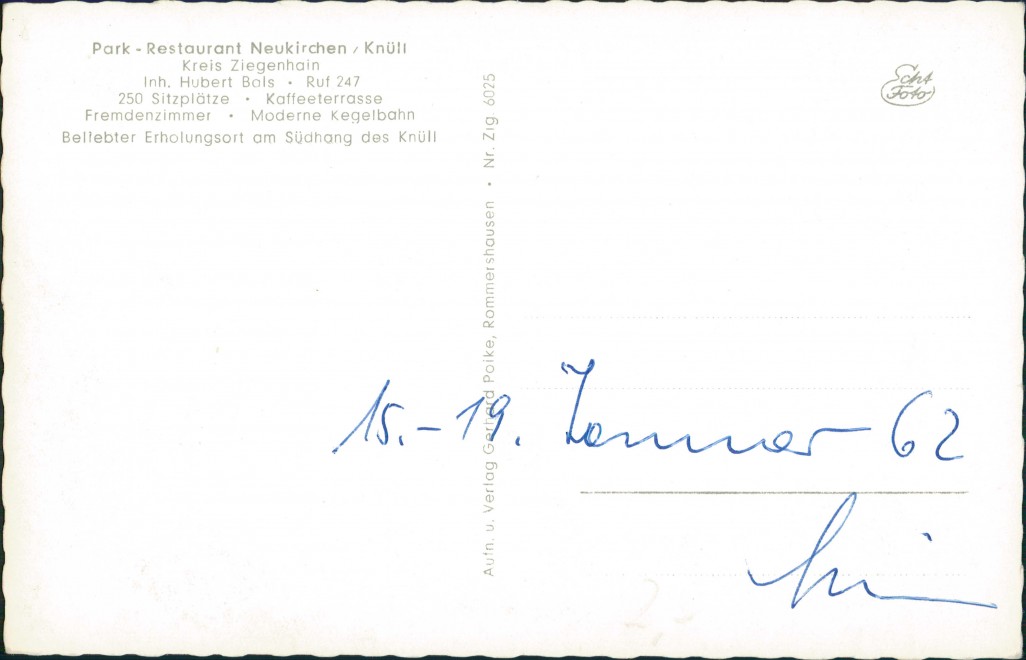 Park - Restaurant Neukirchen / Knüll
Kreis Ziegenhain
Inh. Hubert Bals • Ruf 247
250 Sitzplätze • Kaffeeterrasse
Fremdenzimmer • Moderne Kegelbahn
Beliebter Erholungsort am Südhang des Knüll
Aufn. u. Verlag Gerhard Poike, Rommershausen • Nr. Zig 6025
Echt
Foto
15. – 19. Januar 62